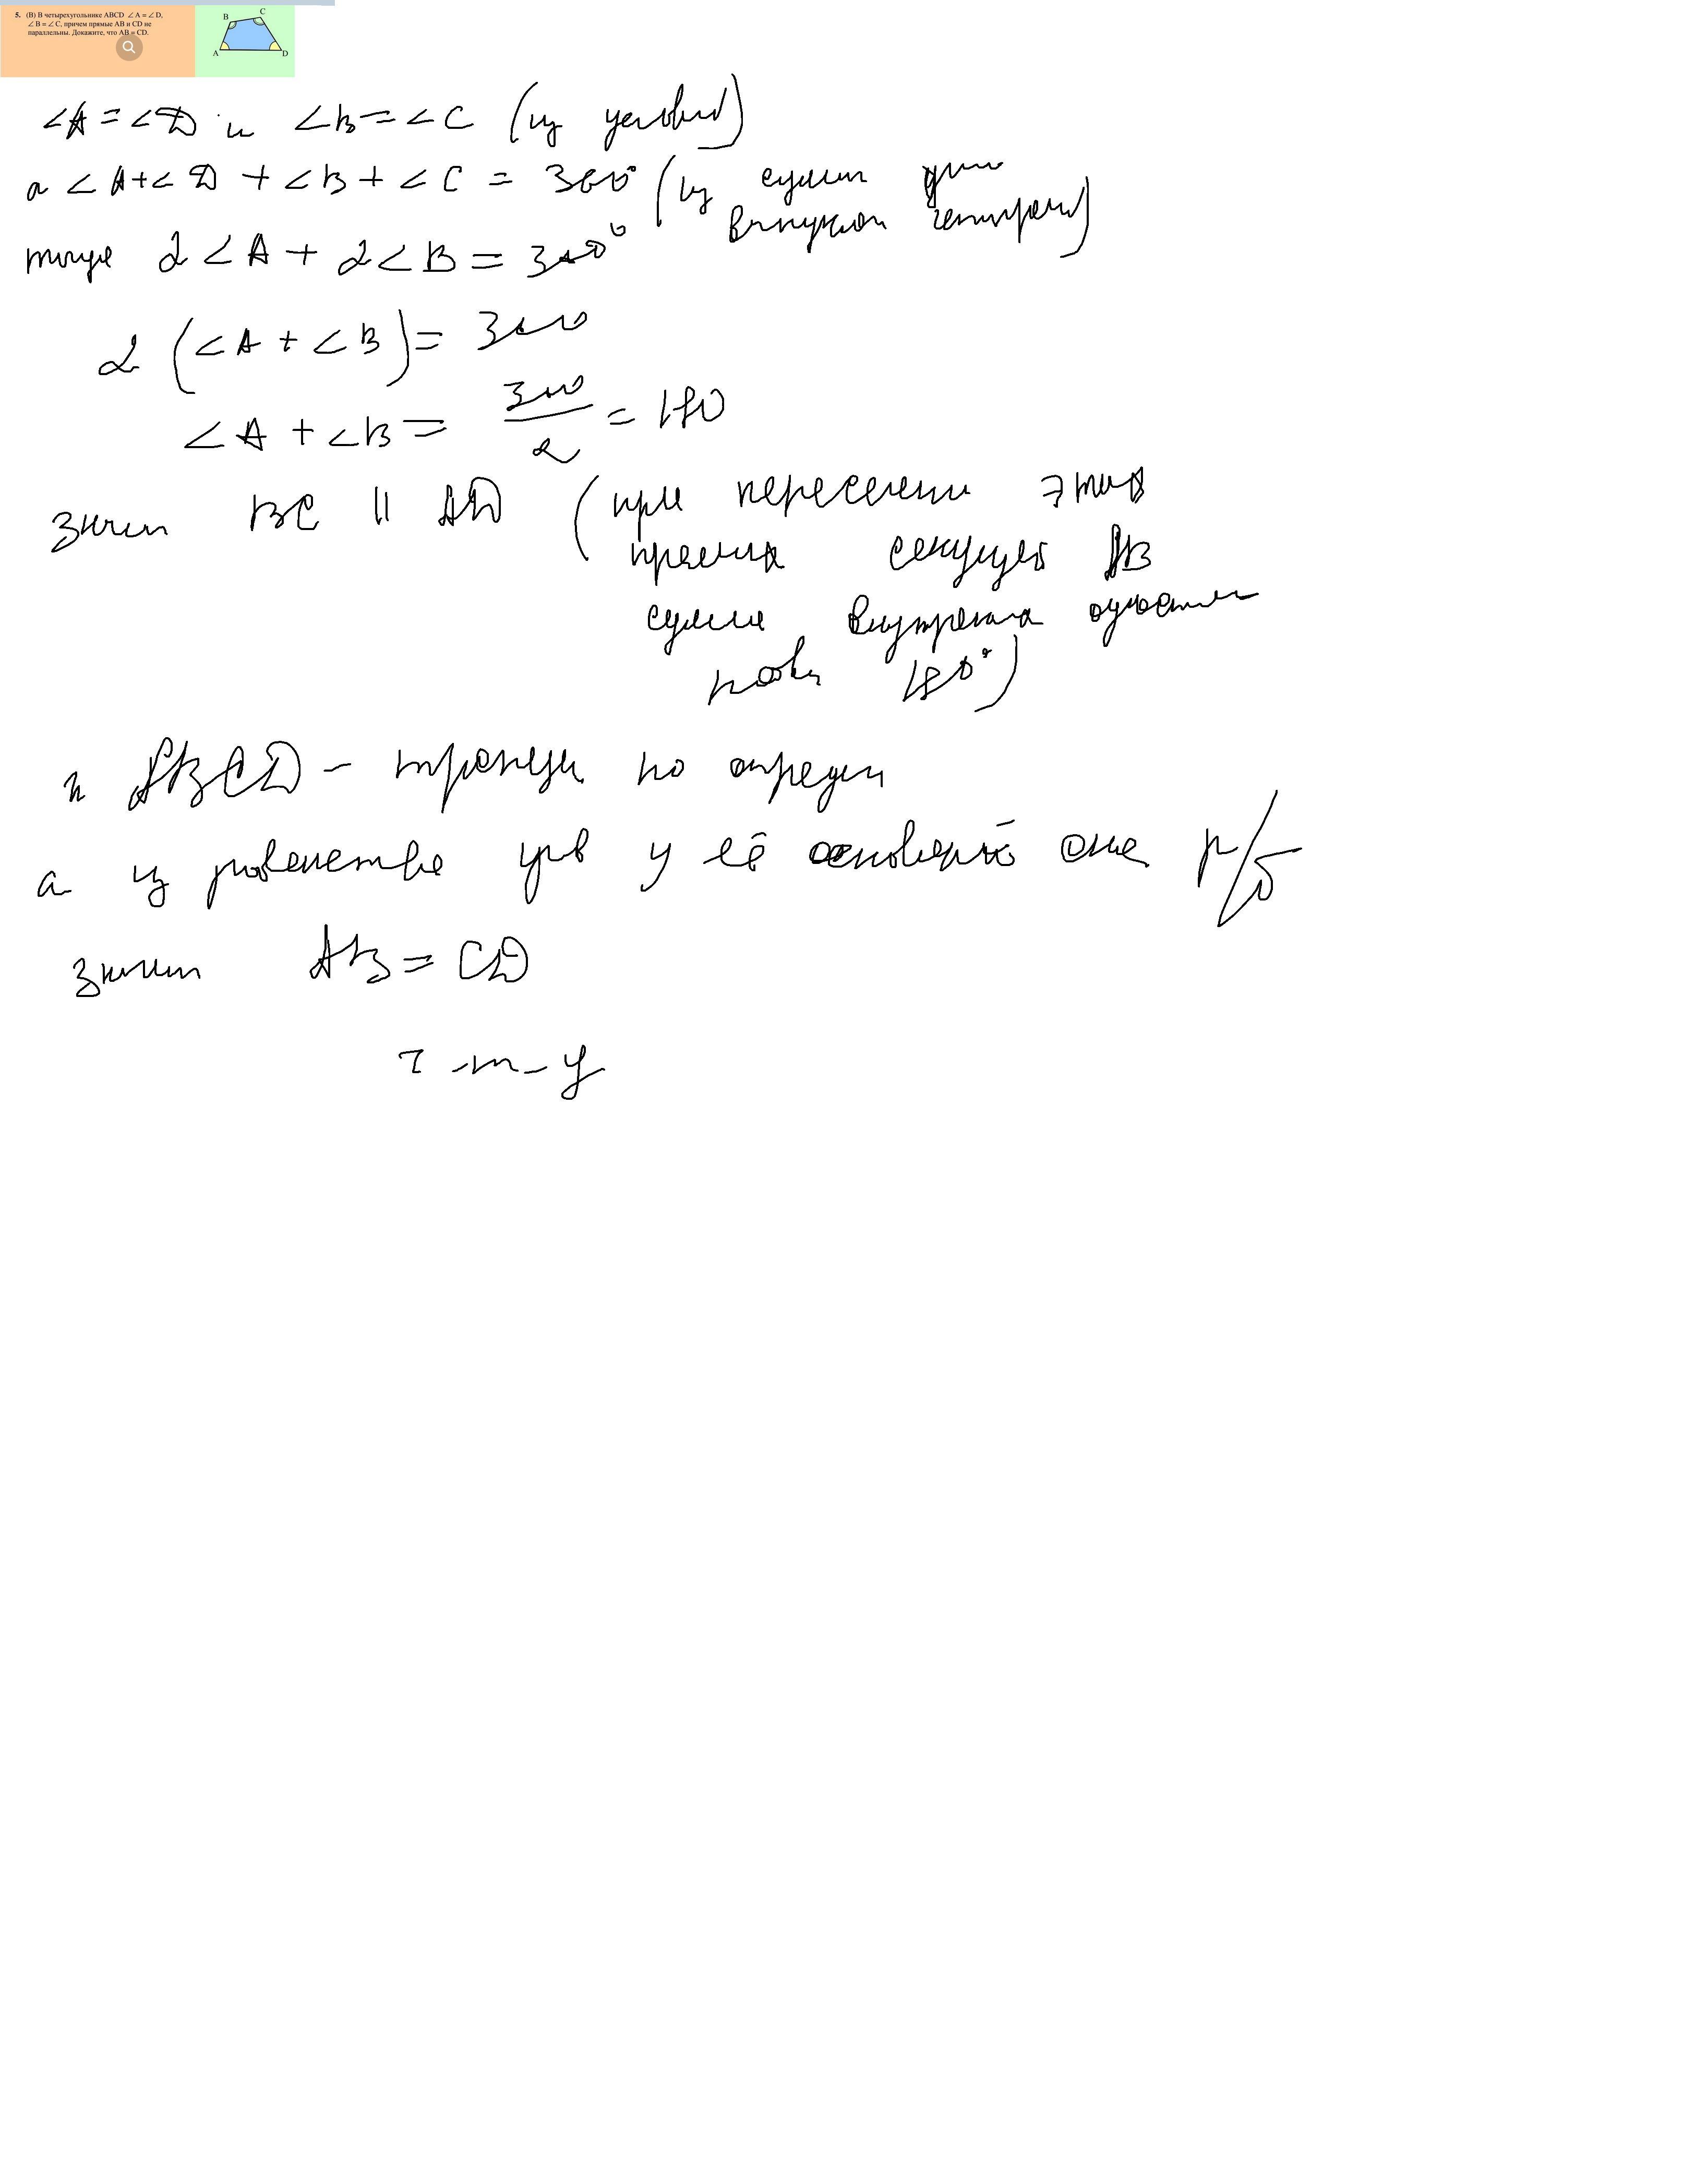 5. (В) В четырехугольнике ABCD ∠ A = ∠ D,
∠ B = ∠ C, причем прямые AB и CD не
параллельны. Докажите, что AB = CD.
B C
A D
∠A = ∠D и ∠B = ∠C (из условия)
а ∠A + ∠D + ∠B + ∠C = 360° (из суммы
выпуклом
тогда 2∠A + 2∠B = 360°
2 (∠A + ∠B) = 360
∠A + ∠B = 360/2 = 180
значит BC || AD (при пересечении этих
прямых секущей AB
сумма внутренних
равна 180°)
и ABCD – трапеция по определ
а из равенства углов у её оснований она р/б
значит AB = CD
ч-т-д